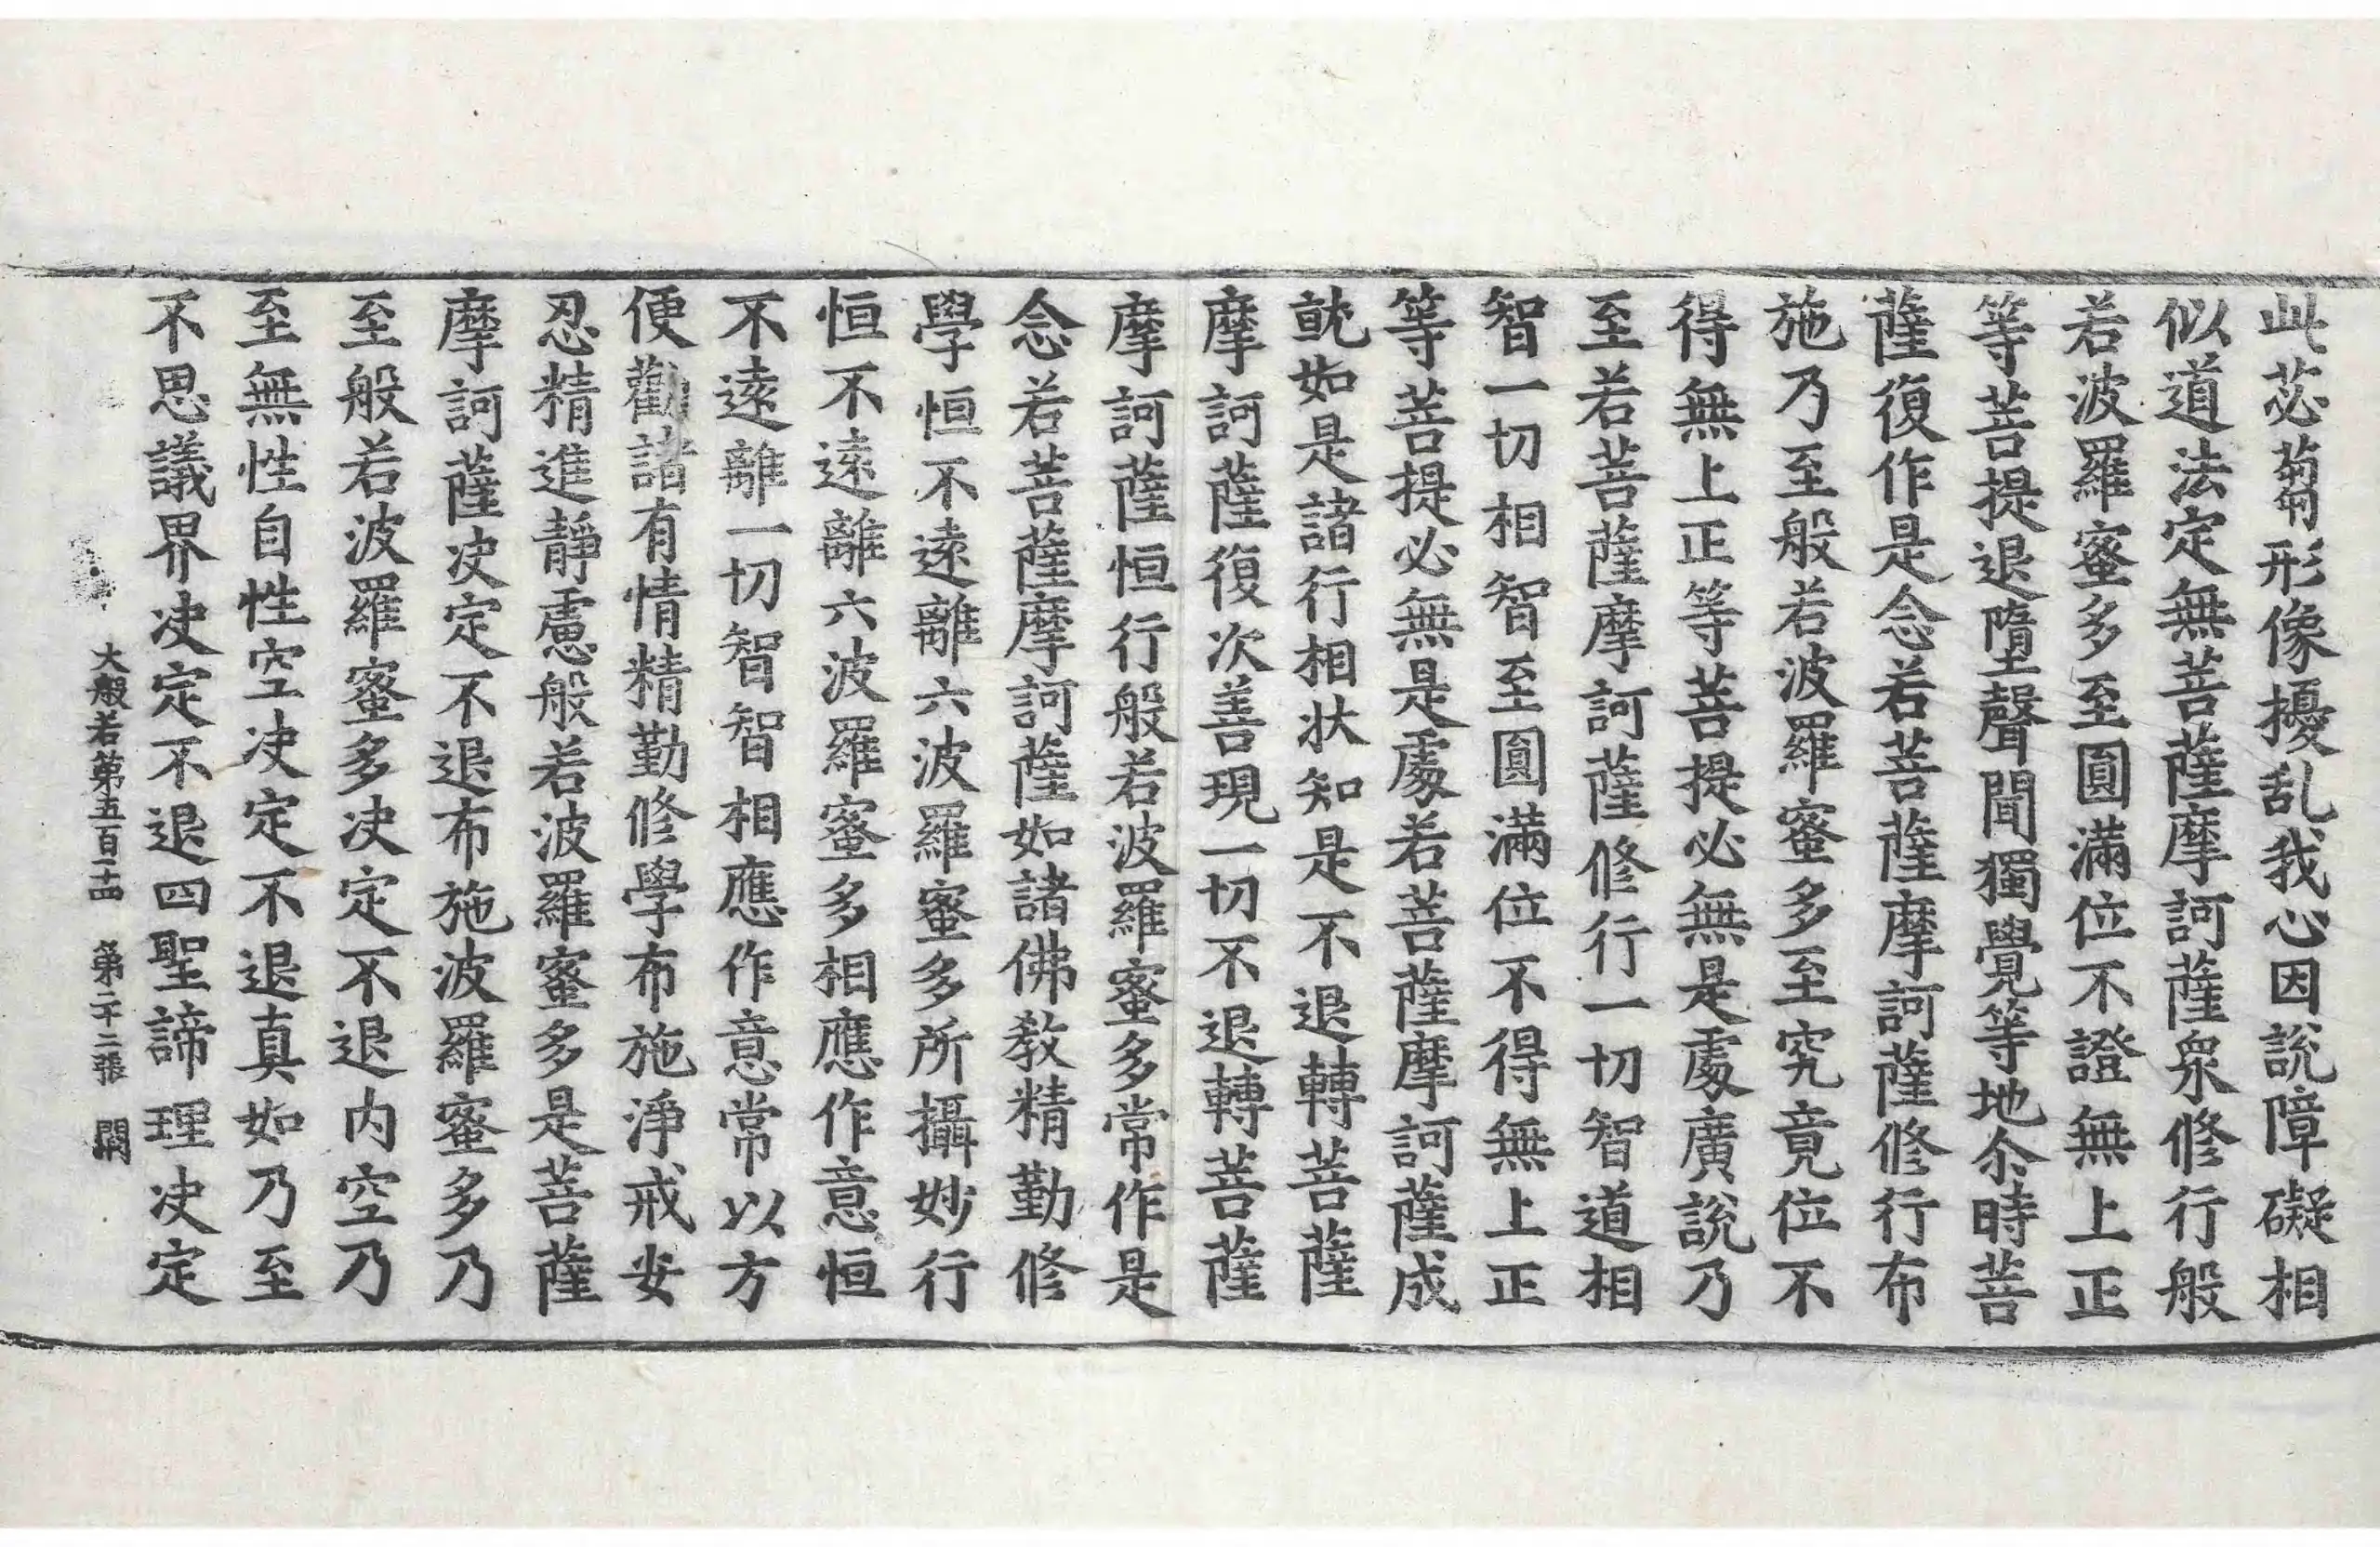 此苾蒭形像擾乱我心因說障礙相
似道法定無菩薩摩訶薩衆修行般
若波羅蜜多至圓滿位不證無上正
等菩提退墮聲聞獨覺等地尒時菩
薩復作是念若菩薩摩訶薩修行布
施乃至般若波羅蜜多至究竟位不
得無上正等菩提必無是處廣說乃
至若菩薩摩訶薩修行一切智道相
智一切相智至圓滿位不得無上正
等菩提必無是處若菩薩摩訶薩成
就如是諸行相狀知是不退轉菩薩
摩訶薩復次善現一切不退轉菩薩
摩訶薩恒行般若波羅蜜多常作是
念若菩薩摩訶薩如諸佛教精勤修
學恒不遠離六波羅蜜多所攝妙行
恒不遠離六波羅蜜多相應作意恒
不遠離一切智智相應作意常以方
便勸諸有情精勤修學布施淨戒安
忍精進靜慮般若波羅蜜多是菩薩
摩訶薩决定不退布施波羅蜜多乃
至般若波羅蜜多决定不退内空乃
至無性自性空决定不退真如乃至
不思議界决定不退四聖諦理决定
大般若第五百一十四 第二十二張 闕